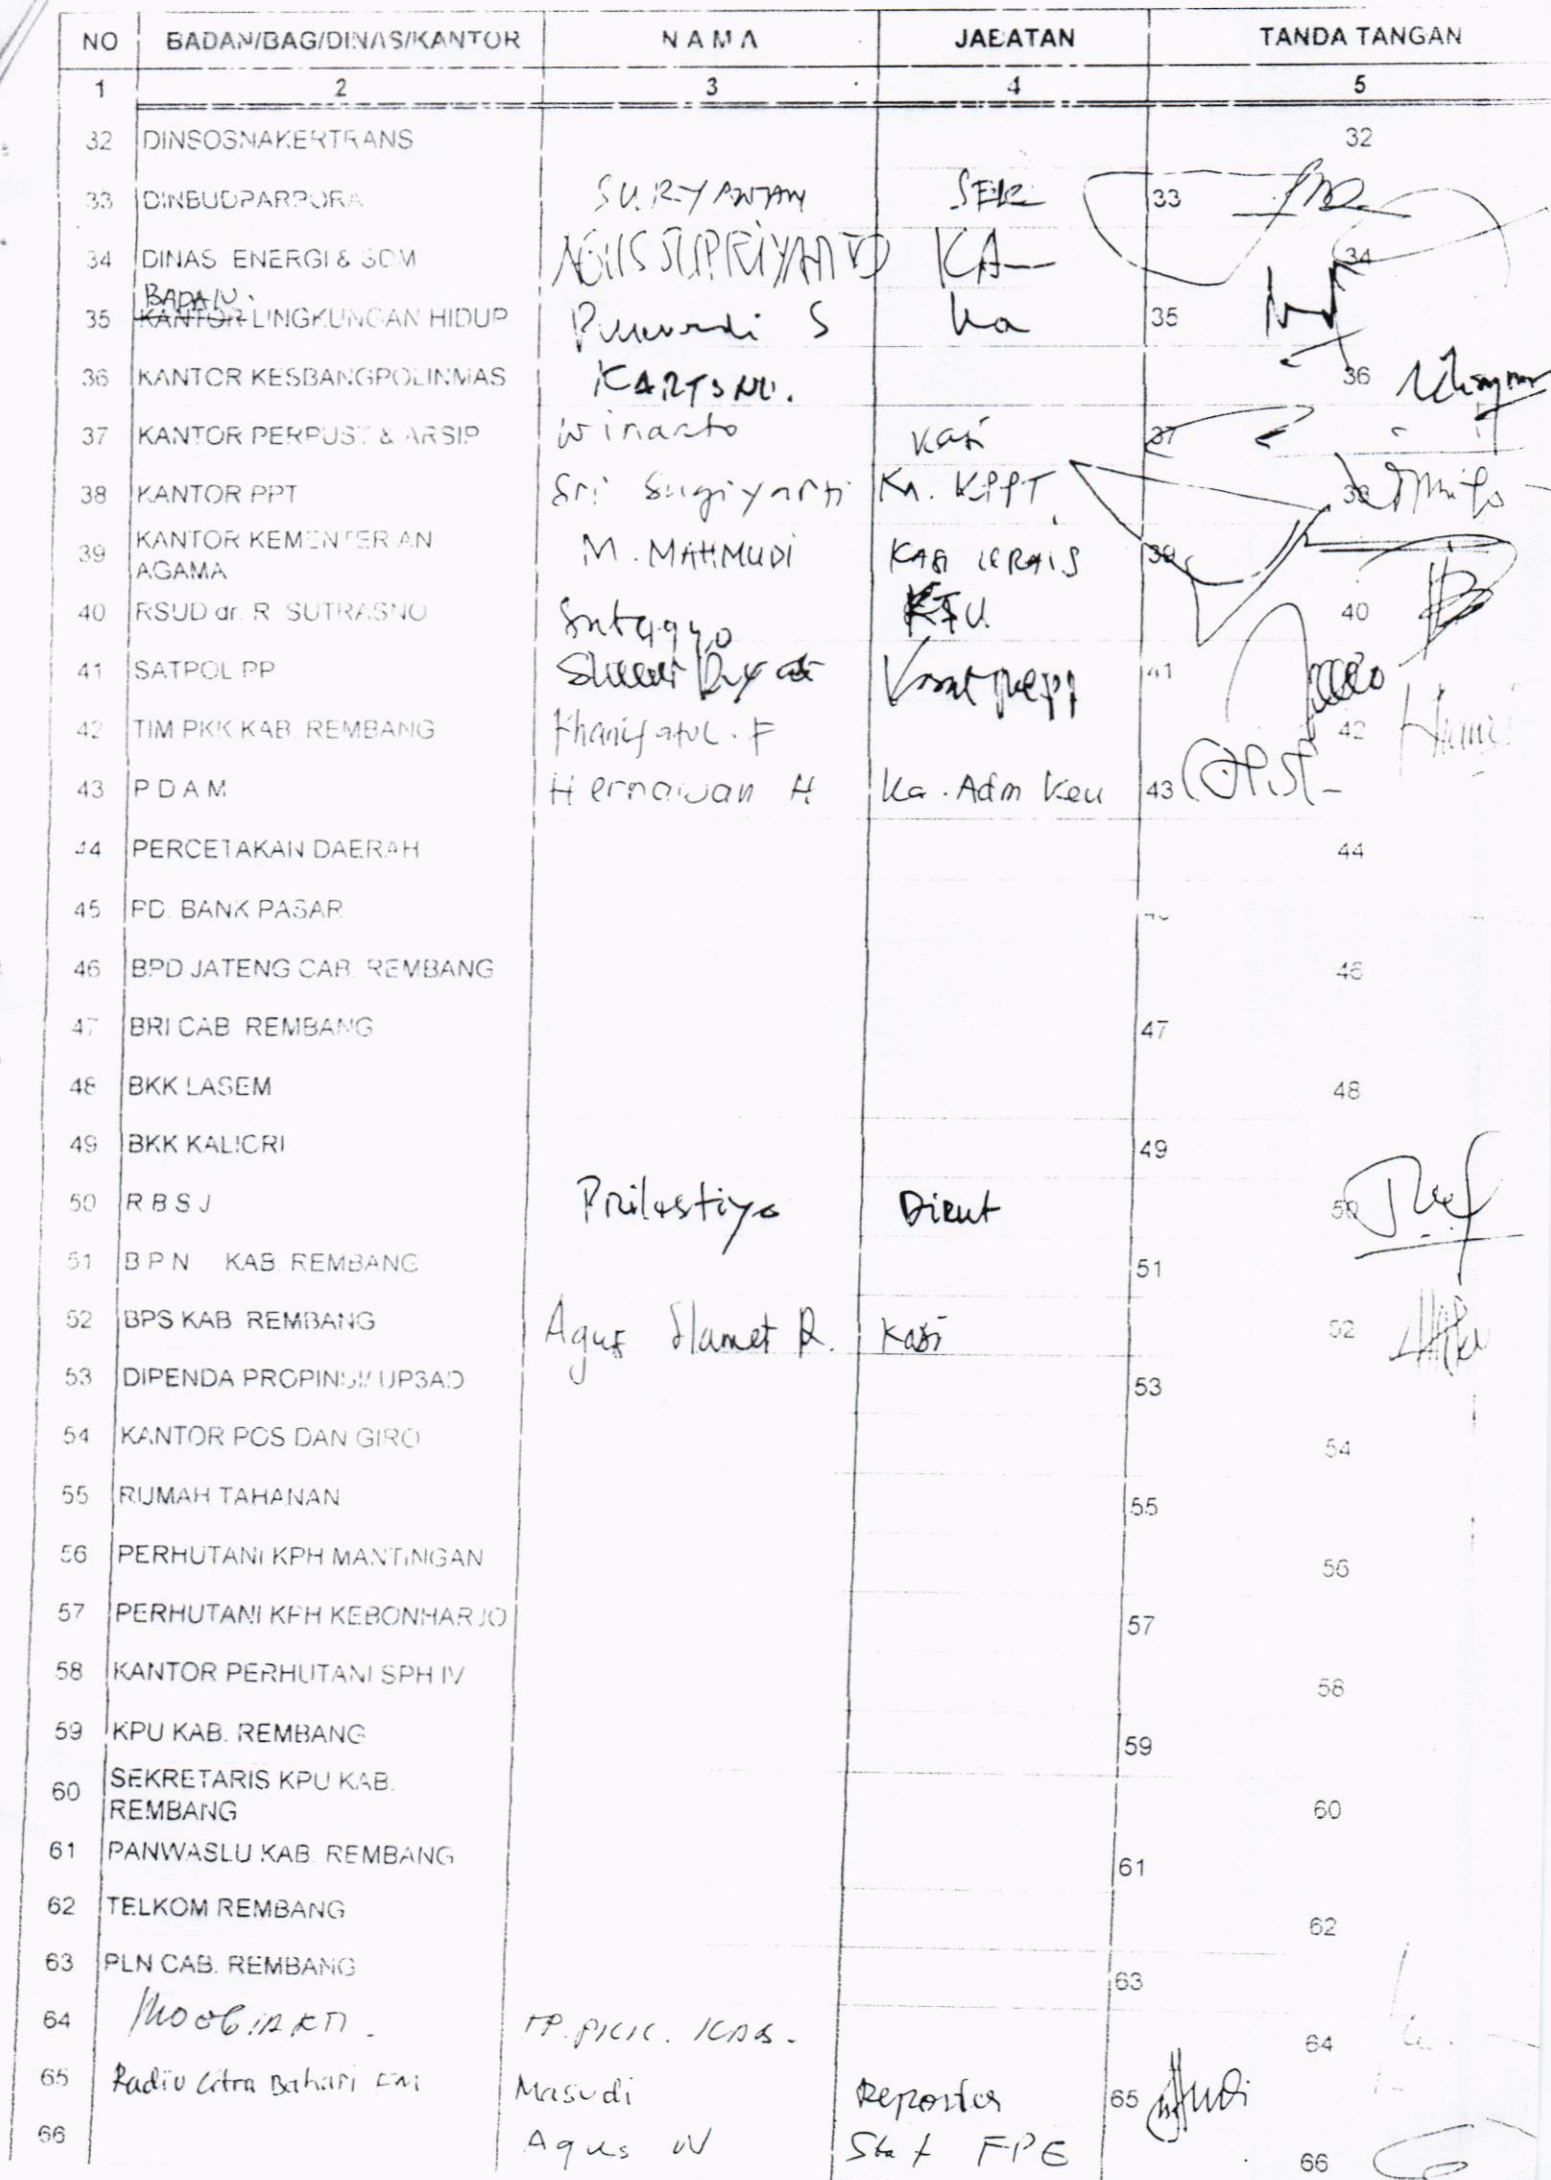 NO BADAN/BAG/DINAS/KANTOR NAMA JABATAN TANDA TANGAN
1 2 3 4 5
32 DINSOSNAKERTRANS 32
33 DINBUDPARPORA SURYANTAN SEK 33
34 DINAS ENERGI & SDM AGUS SUPRIYANTO KA 34
BADAN.
35 KANTOR LINGKUNGAN HIDUP Purwadi S Ka 35
36 KANTOR KESBANGPOLINMAS KARTONO. 36
37 KANTOR PERPUST & ARSIP Winarto Kasi 37
38 KANTOR PPT Sri Sugiyarti KA. KPPT 38
39 KANTOR KEMENTERIAN AGAMA M. MAHMUDI KASI 39
40 RSUD dr. R. SUTRASNO KTU 40
41 SATPOL PP 41
42 TIM PKK KAB. REMBANG Khanifatul. F 42
43 PDAM Hernawan H. Ka. Adm Keu 43
44 PERCETAKAN DAERAH 44
45 PD. BANK PASAR
46 BPD JATENG CAB. REMBANG 46
47 BRI CAB REMBANG 47
48 BKK LASEM 48
49 BKK KALIORI 49
50 RBSJ Prilestiyo Dirut 50
51 BPN KAB. REMBANG 51
52 BPS KAB REMBANG Agus Slamet R. Kasi 52
53 DIPENDA PROPINSI/ UP3AD 53
54 KANTOR POS DAN GIRO 54
55 RUMAH TAHANAN 55
56 PERHUTANI KPH MANTINGAN 56
57 PERHUTANI KPH KEBONHARJO 57
58 KANTOR PERHUTANI SPH IV 58
59 KPU KAB. REMBANG 59
60 SEKRETARIS KPU KAB. REMBANG 60
61 PANWASLU KAB. REMBANG 61
62 TELKOM REMBANG 62
63 PLN CAB. REMBANG 63
64 TP. PKK. KAB. 64
65 Radio Citra Bahari FM Masudi Reporter 65
66 Agus W Staf FPE 66